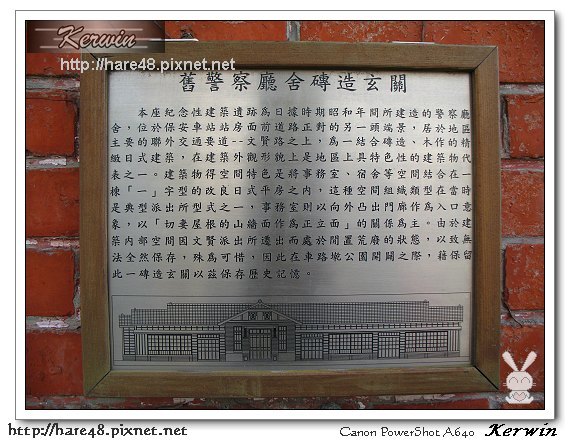 Kerwin
http://hare48.pixnet.net
舊警察廳舍磚造玄關
本座紀念性建築遺跡為日據時期昭和年間所建造的警察廳
舍，位於保安車站站房前道路對面的另一頭端景，居於地區
主要的聯外交通要道--文賢路上，是一結合磚造、木作的精
緻日式建築，在建築外觀形貌上是地區具特色性的建築物代
表之一。建築物得空間特色是將事務室、宿舍等空間結合在一
棟「一」字型的改良日式平房之內，這種空間組織類型在當時
是典型派出所型式之一，事務室則向外凸出門廊作為入口意
象，以「切妻」屋根的山牆面作為正面上空間關係為主。由於建
築內部空間因文賢派出所遷出而處於閒置荒廢的狀態，以致無
法全然保存，殊為可惜，因此在車路墘公園開闢之際，籍保留
此一磚造玄關以茲保存歷史記憶。
http://hare48.pixnet.net
Canon PowerShot A640 Kerwin